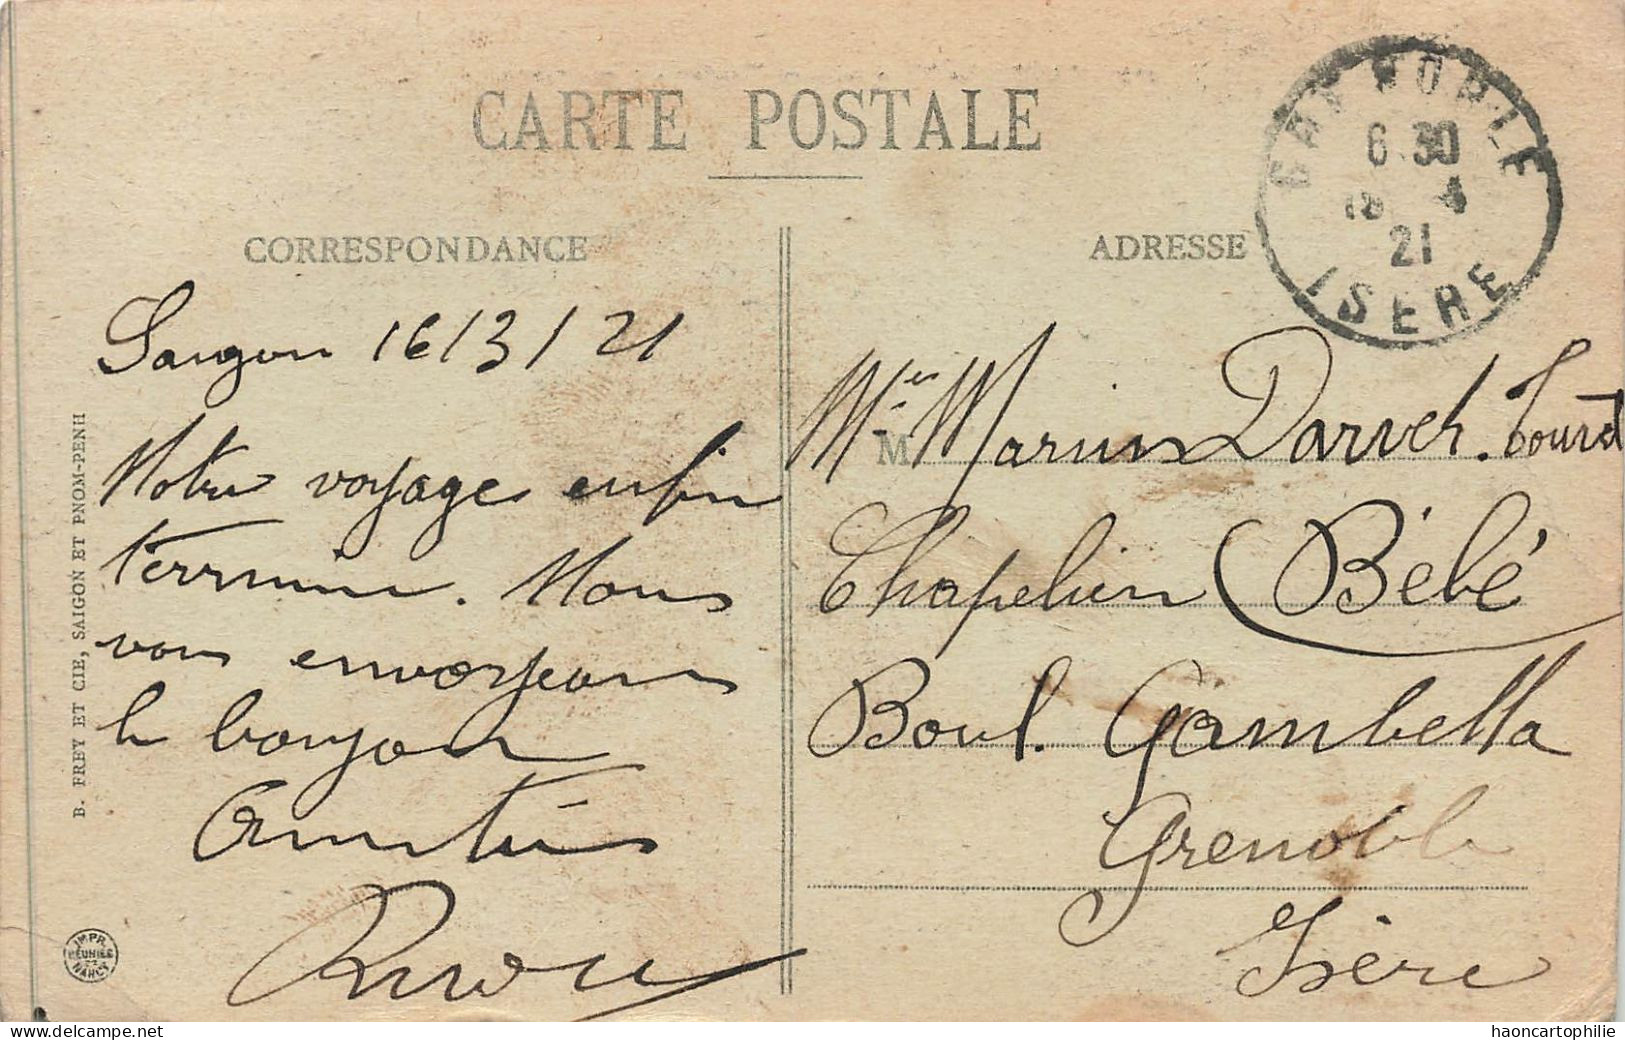 CARTE POSTALE
GRENOBLE
6 30
18 4
21
ISERE
CORRESPONDANCE
ADRESSE
Saigon 16/3/21
Notre voyage enfin
terminé. Nous
vous envoyons
le bonjour
Amitiés
M
Mr Marius Darvet. Tourd
Chapelien (Bébé
Boul. Gambetta
Grenoble
Isère
B. FREY ET CIE, SAIGON ET PNOM-PENH
IMPR.
REUNIES
NANCY
www.delcampe.net
haoncartophilie